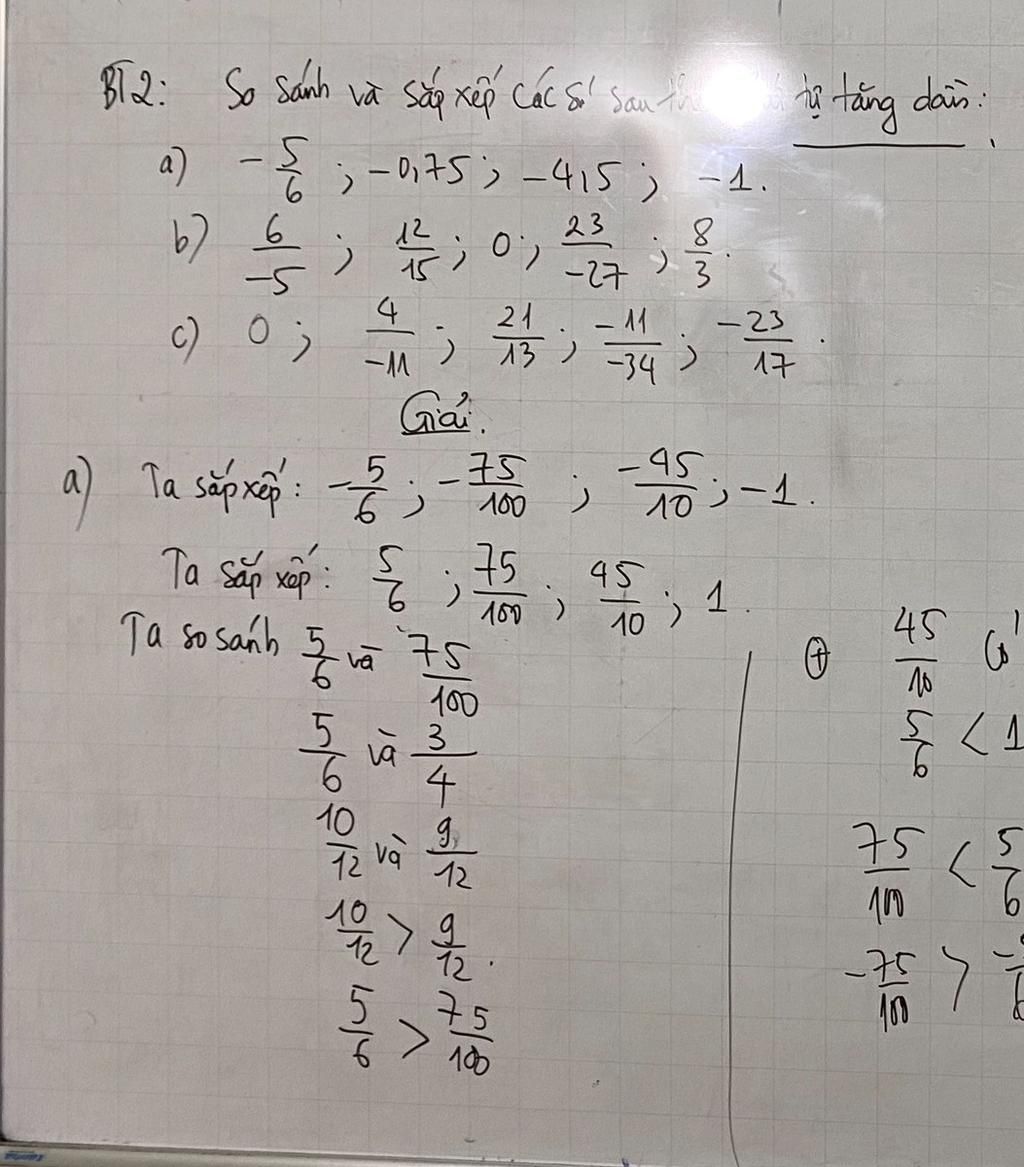 BT2: So sánh và sắp xếp các số sau tự tăng dần:
a) -5/6 ; -0,75 ; -4,5 ; -1.
b) 6/-5 ; 12/15 ; 0 ; 23/-27 ; 8/3.
c) 0 ; 4/-11 ; 21/13 ; -11/-34 ; -23/17.
Giải.
a) Ta sắp xếp: -5/6 ; -75/100 ; -45/10 ; -1.
Ta sắp xếp: 5/6 ; 75/100 ; 45/10 ; 1.
Ta so sánh 5/6 và 75/100
5/6 và 3/4
10/12 và 9/12
10/12 > 9/12.
5/6 > 75/100
⊕ 45/10 có
5/6 < 1
75/100 < 5/6
-75/100 >